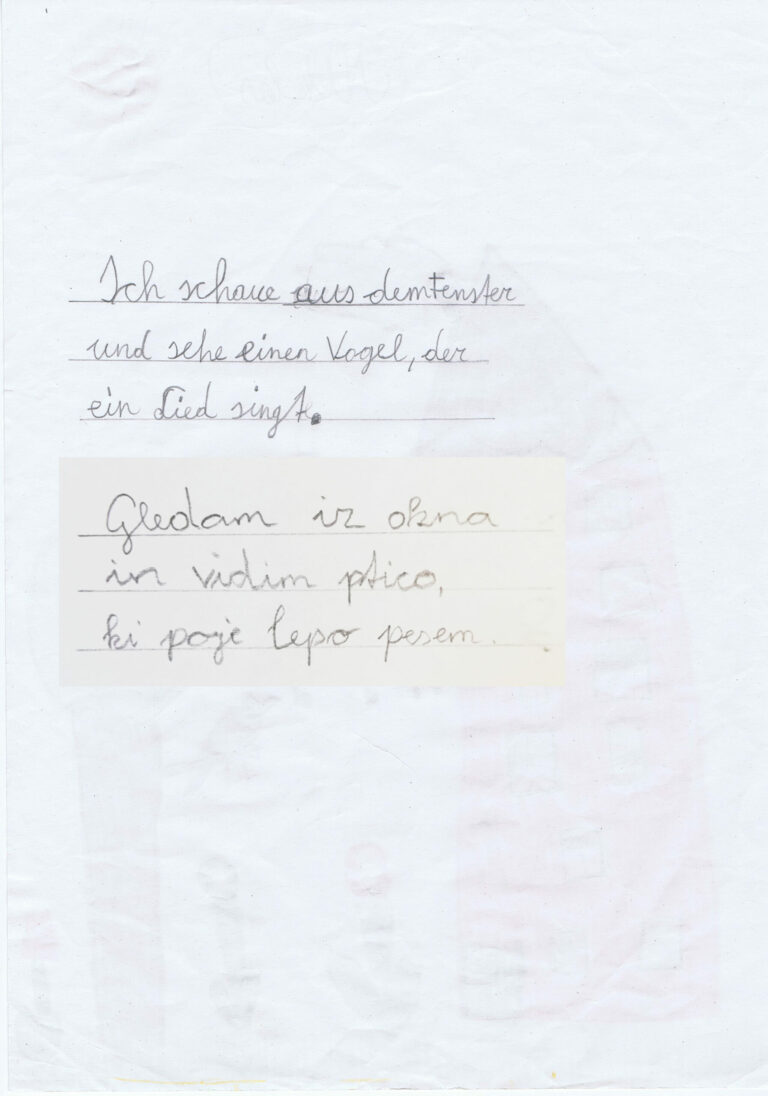 Ich schaue aus dem Fenster
und sehe einen Vogel, der
ein Lied singt.
Gledam iz okna
in vidim ptico,
ki poje lepo pesem.